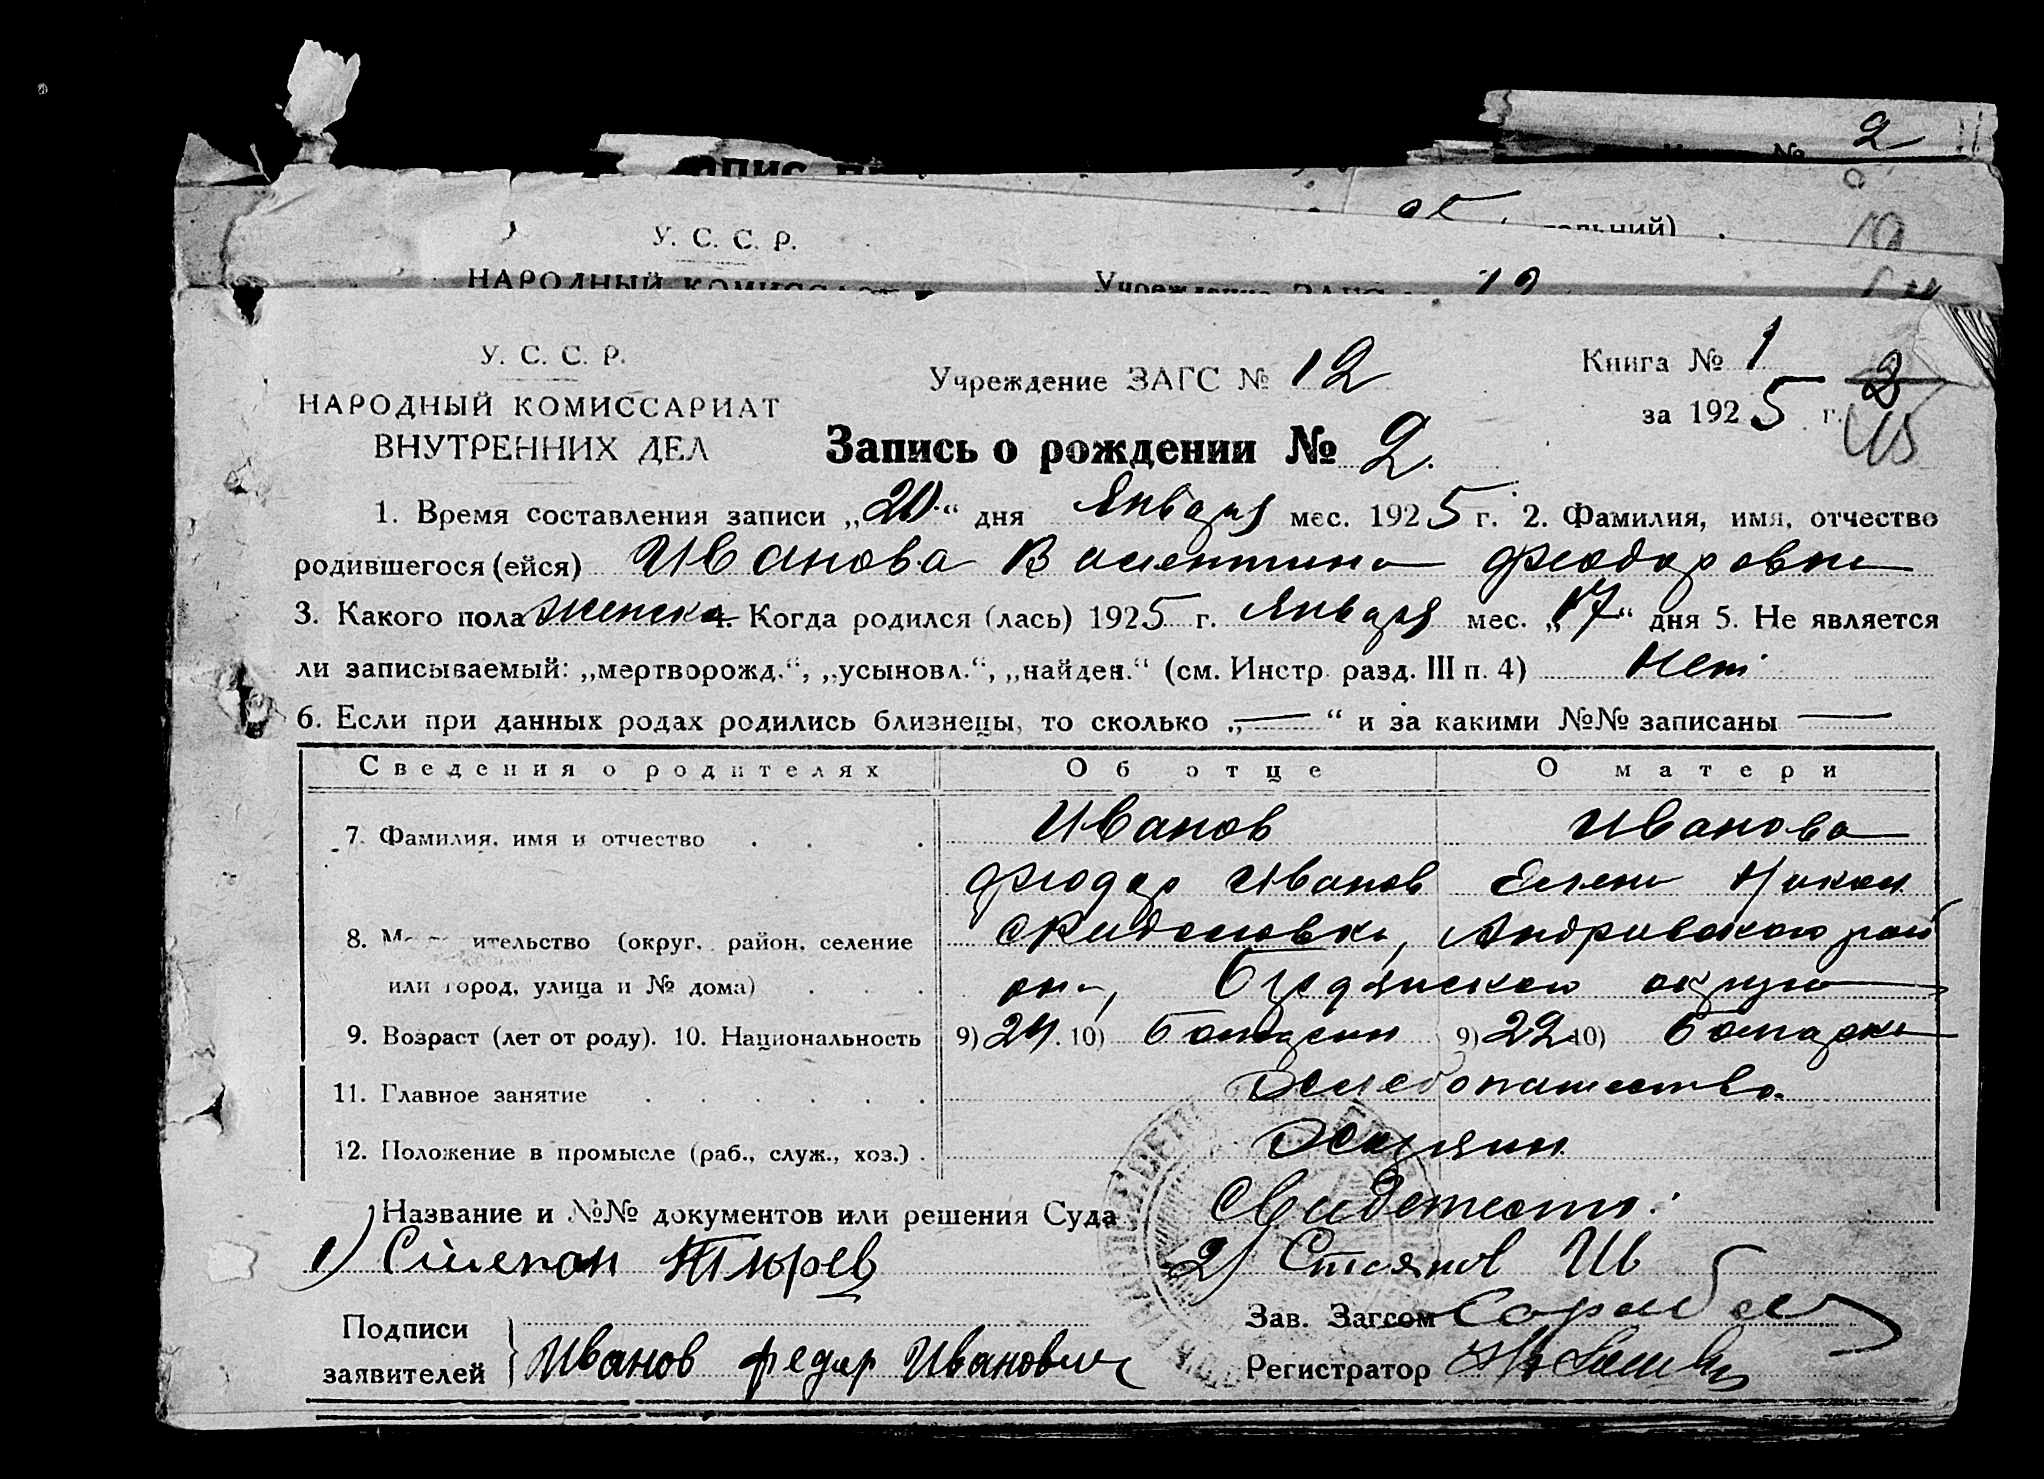 2
№
У. С. С. Р.
НАРОДНЫЙ КОМИССАРИАТ
Учреждение ЗАГС 12
У. С. С. Р.
НАРОДНЫЙ КОМИССАРИАТ
ВНУТРЕННИХ ДЕЛ
Учреждение ЗАГС № 12
Книга № 1
за 1925 г.
2
Запись о рождении № 2.
1. Время составления записи „20“ дня Января мес. 1925 г. 2. Фамилия, имя, отчество
родившегося (ейся) Иванова Валентина Феодоровна
3. Какого пола женска 4. Когда родился (лась) 1925 г. Января мес. „17“ дня 5. Не является
ли записываемый: „мертворожд.“, „усыновл.“, „найден.“ (см. Инстр. разд. III п. 4) Нет
6. Если при данных родах родились близнецы, то сколько „—“ и за какими №№ записаны —
Сведения о родителях Об отце О матери
7. Фамилия, имя и отчество Иванов Иванова
Феодор Иванов Елена Никон
8. ительство (округ, район, селение Андривского рай
или город, улица и № дома) она, Бердянского округа
9. Возраст (лет от роду). 10. Национальность 9) 24 10) Болгарин 9) 22 10) Болгарка
11. Главное занятие Хлебопашество.
12. Положение в промысле (раб., служ., хоз.) Хозяин
Название и №№ документов или решения Суда Свидетели:
1) Степан 2) Стоянов Ив
Подписи
заявителей
Иванов Федор Иванович
Зав. Загсом
Регистратор